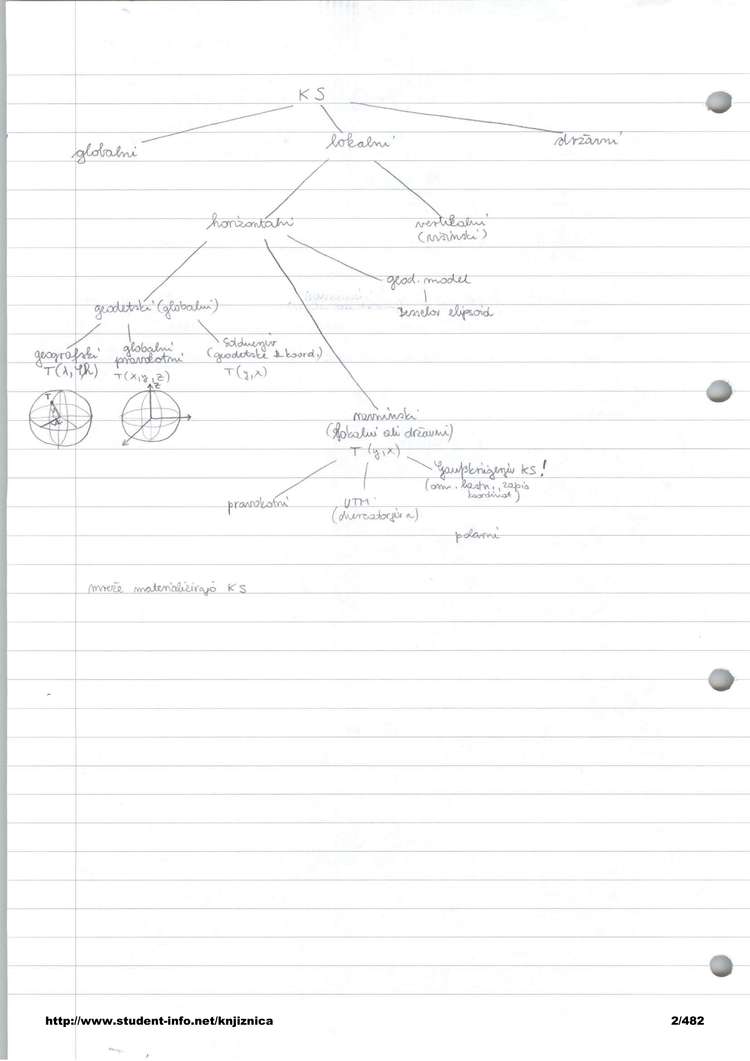 KS
globalni
lokalni
državni
horizontalni
vertikalni
(višinski)
geodetski (globalni)
geod. model
elipsoid
geografski
T(λ, φ, h)
globalni
pravokotni
T(x, y, z)
Soldnerjev
(geodetske koord.)
T(y, x)
z
T
ravninski
(lokalni ali državni)
T (y, x)
pravokotni
UTM
Gauß-Krügerjev KS!
zapis
koordinat)
polarni
mreže materializirajo KS
http://www.student-info.net/knjiznica
2/482